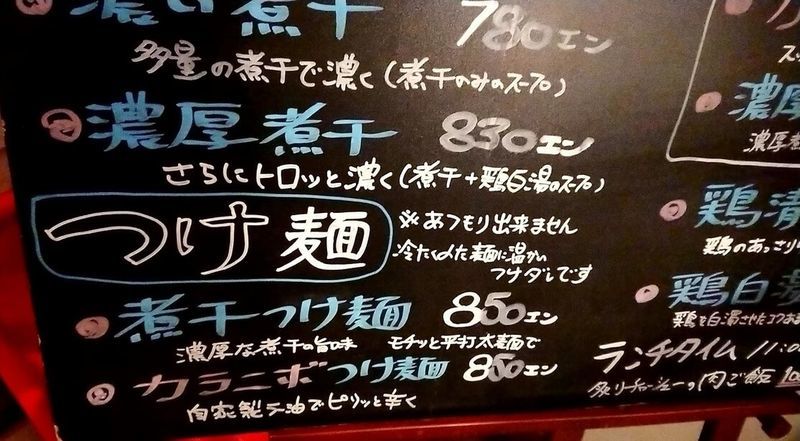 濃い煮干 780エン
多量の煮干で濃く(煮干のみのスープ)
濃厚煮干 830エン
さらにトロッと濃く(煮干+鶏白湯のスープ)
つけ麺
※あつもり出来ません
冷たくしめた麺に温かい
つけダレです
煮干つけ麺 850エン
濃厚な煮干の旨味 モチッと平打太麺で
カラニボつけ麺 850エン
自家製ラー油でピリッと辛く
濃厚
濃厚
鶏清
鶏のあっさり
鶏白湯
鶏を白濁させた
ランチタイム 11:00
炙りチャーシューの肉ご飯